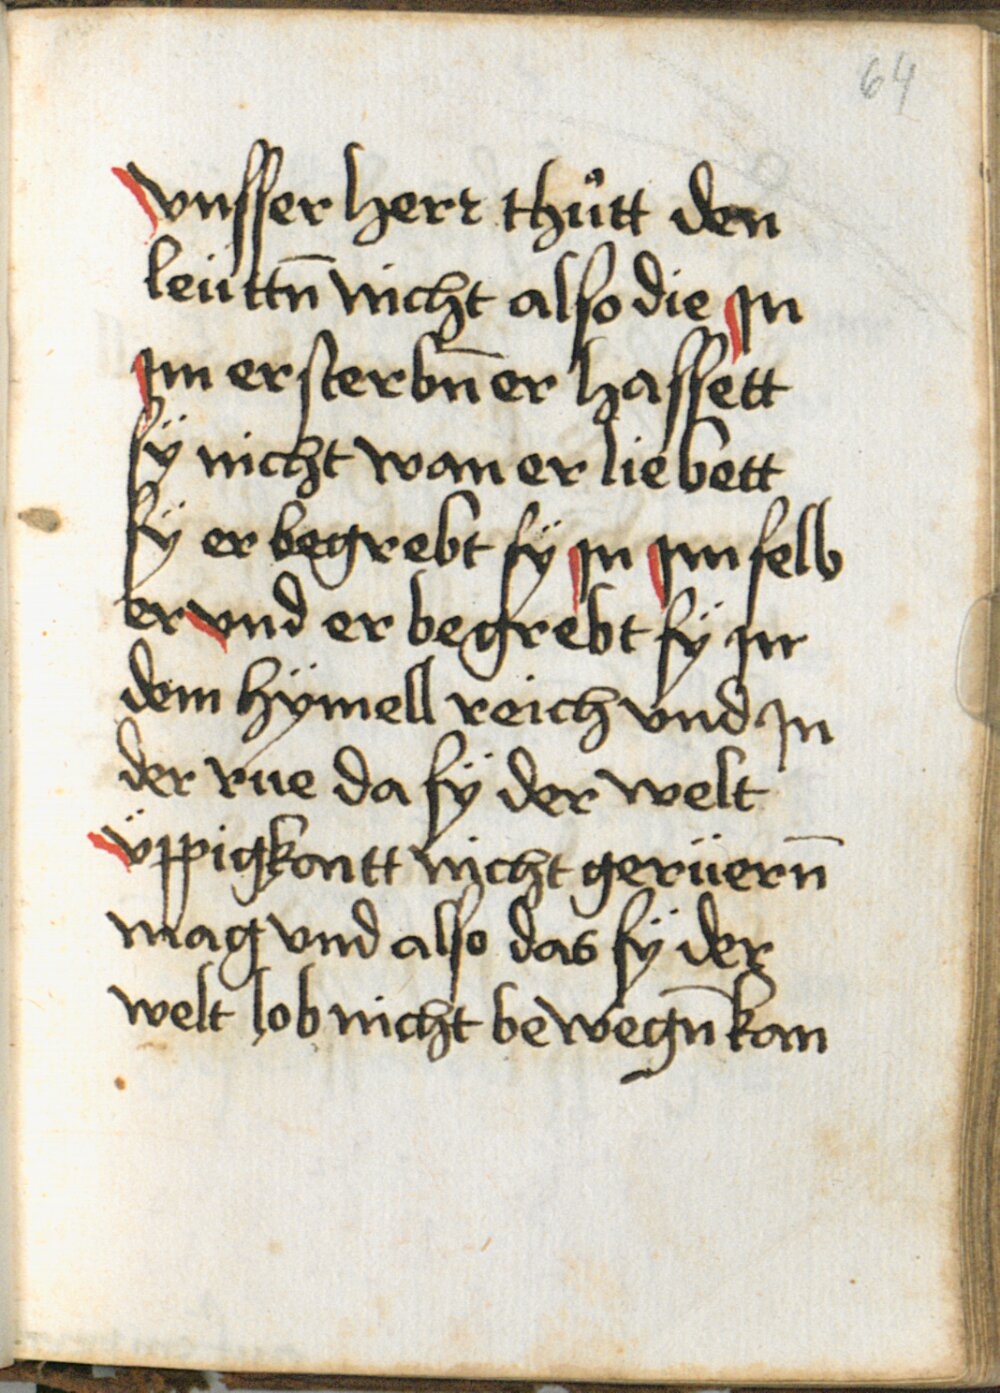 64
vnsser herr thůtt den
leüttn̄ nicht also die Jn
Jm ersterbn̄ er hassett
sÿ nicht wan er liebett
sÿ er begrebt sÿ Jn Jm selb
er vnd er begrebt sÿ Jn
dem hÿmell reich vnd Jn
der rue da sÿ der welt
üppigkaitt nicht gerüern̄
mag vnd also das sÿ der
welt lob nicht bewegn̄ kan